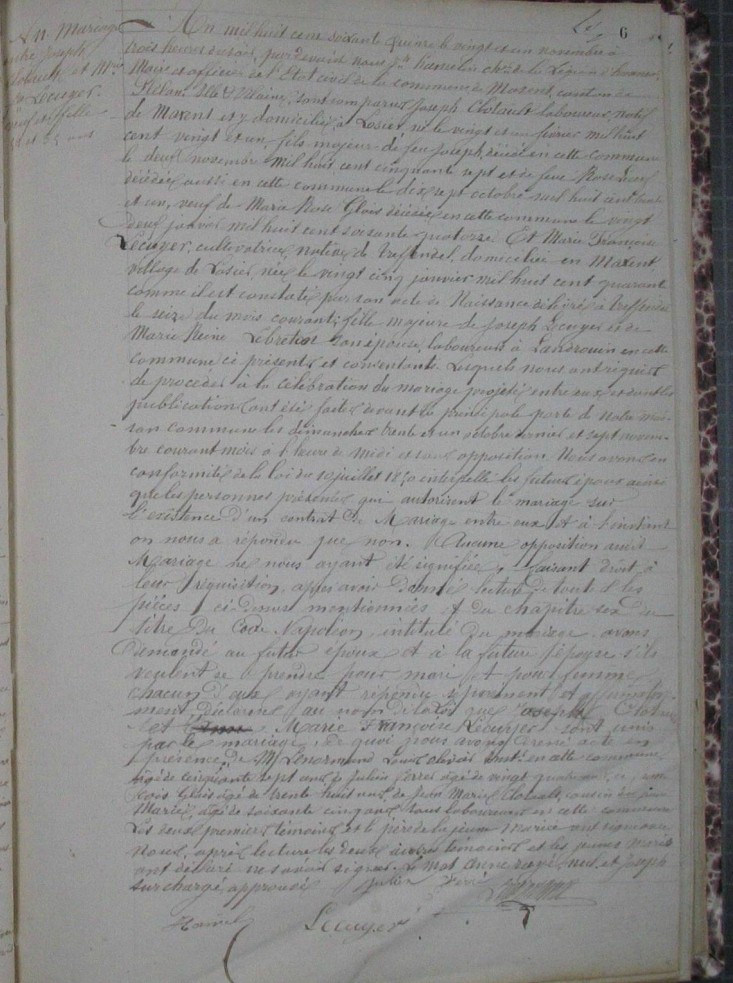 6
An. Mariage
entre Joseph
Clolault et Mie
Lecuyer
L'an mil huit cent soixante quinze le vingt et un novembre à
trois heures du soir, par devant nous Hamelin de la Légion d'honneur,
Maire et officier de l'Etat civil de la commune de Maxent, canton de
Plélan Ille & Vilaine, sont comparus Joseph Clolault laboureur, natif
de Maxent et y domicilié, à Losier, né le vingt et un février mil huit
cent vingt et un, fils majeur de feu Joseph, décédé en cette commune
le deux novembre mil huit cent cinquante sept et de feue Rose
décédée aussi en cette commune le dix sept octobre mil huit cent
et un, veuf de Marie Rose Glois décédée en cette commune le vingt
deux janvier mil huit cent soixante quatorze Et Marie Françoise
Lecuyer, cultivatrice, native de Treffendel, domiciliée en Maxent
village de Losier, née le vingt cinq janvier mil huit cent quarante
comme il est constaté par son acte de Naissance délivré à Treffendel
le seize du mois courant; fille majeure de Joseph Lecuyer et de
Marie Reine Lebreton son épouse, laboureurs à Landrouin en cette
commune ci présents et consentants. Lesquels nous ont requis
de procéder à la célébration du mariage projeté entre eux et dont les
publications ont été faites devant la principale porte de notre mai-
son commune les dimanches trente et un octobre dernier et sept novem-
bre courant mois à l'heure de midi et sans opposition. Nous avons en
conformité de la loi du 10 juillet 1850 interpellé les futurs époux ainsi
que les personnes présentes qui autorisent le mariage sur
l'existence d'un contrat de Mariage entre eux et à l'instant
on nous a répondu que non. Aucune opposition audit
Mariage ne nous ayant été signifiée, faisant droit à
leur réquisition, après avoir donné lecture de toutes les
pièces ci dessus mentionnées et du chapitre six du
titre du Code Napoléon, intitulé Du mariage avons
demandé au futur époux et à la future épouse s'ils
veulent se prendre pour mari et pour femme
chacun d'eux ayant répondu séparément et affirmative-
ment, déclarons au nom de la loi que Joseph Clolault
et Marie Françoise Lecuyer sont unis
par le mariage, de quoi nous avons dressé acte en
présence de Mr Lenormand Louis en cette commune
âgé de cinquante sept ans, de Julien Ferré âgé de vingt quatre
Glois âgé de trente huit ans, de Jean Marie Clolault, cousin du jeune
Marié, âgé de soixante cinq ans tous laboureurs en cette commune
Les deux premiers témoins et le père de la jeune Mariée ont signé avec
Nous, après lecture les deux autres témoins et les jeunes mariés
ont déclaré ne savoir signer. Le mot Anne rayé nul et Joseph
surchargé approuvé
Julien Ferré
Hamel
Lecuyer